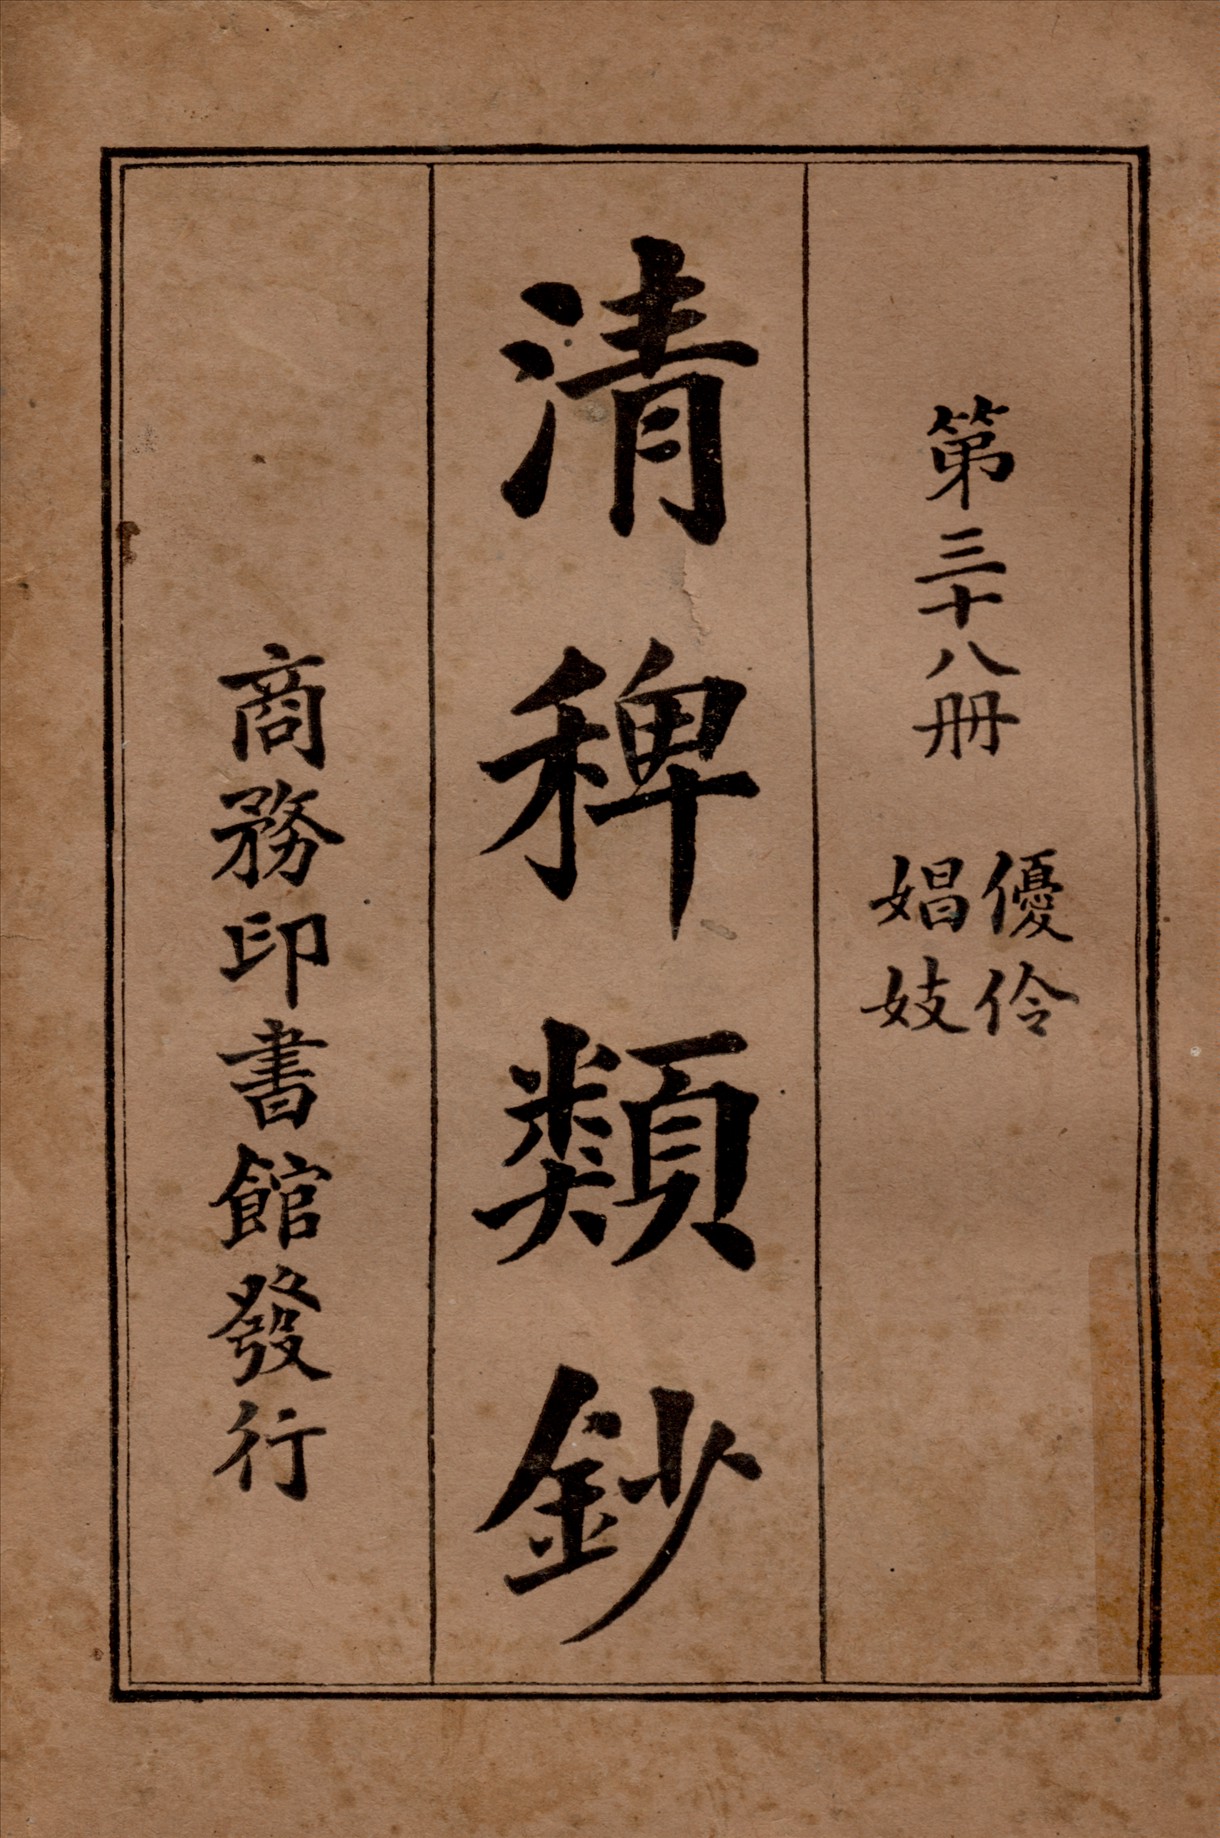 第三十八冊
優伶
娼妓
清稗類鈔
商務印書館發行